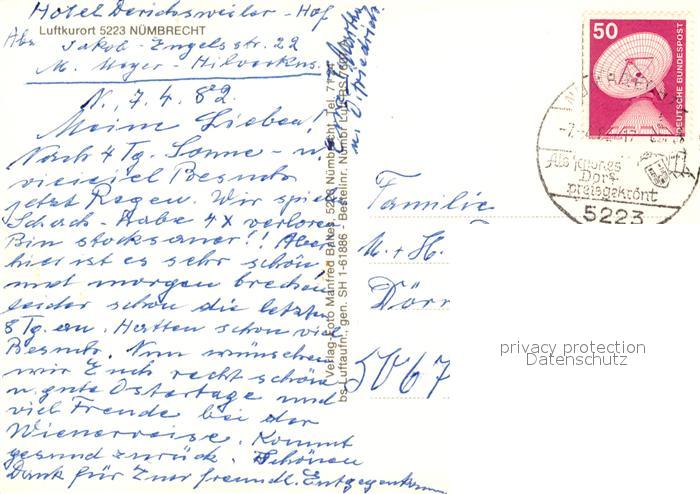 Hotel Derichsweiler-Hof
Luftkurort 5223 NÜMBRECHT
Abs Jakob-Engelsstr. 22
M. Meyer-Hilverkus
N., 7.4.82.
Meine Lieben!
Nach 4 Tg. Sonne - u.
vieieiel Besuch
jetzt Regen. Wir spielen
Schach - habe 4x verloren
Bin stocksauer!! Aber
hier ist es sehr schön
und morgen brechen
leider schon die letzten
8 Tg. an. Hatten schon viel
Besuch. Nun wünschen
wir Euch recht schöne
u. gute Ostertage und
viel Freude bei der
Wienerreise. Kommt
gesund zurück. Schönen
Dank für Euer freundl. Entgegenkom
Martha
u. Friedrich
Verlag-Foto Manfred Baltes, 5223 Nümbrecht, Tel. 71
bs Luftaufn., gen. SH 1-61886 - Bestellnr.
Familie
M. + H.
Dörr
5067
50
DEUTSCHE BUNDESPOST
Als schönes
Dorf
preisgekrönt
5223
privacy protection
Datenschutz